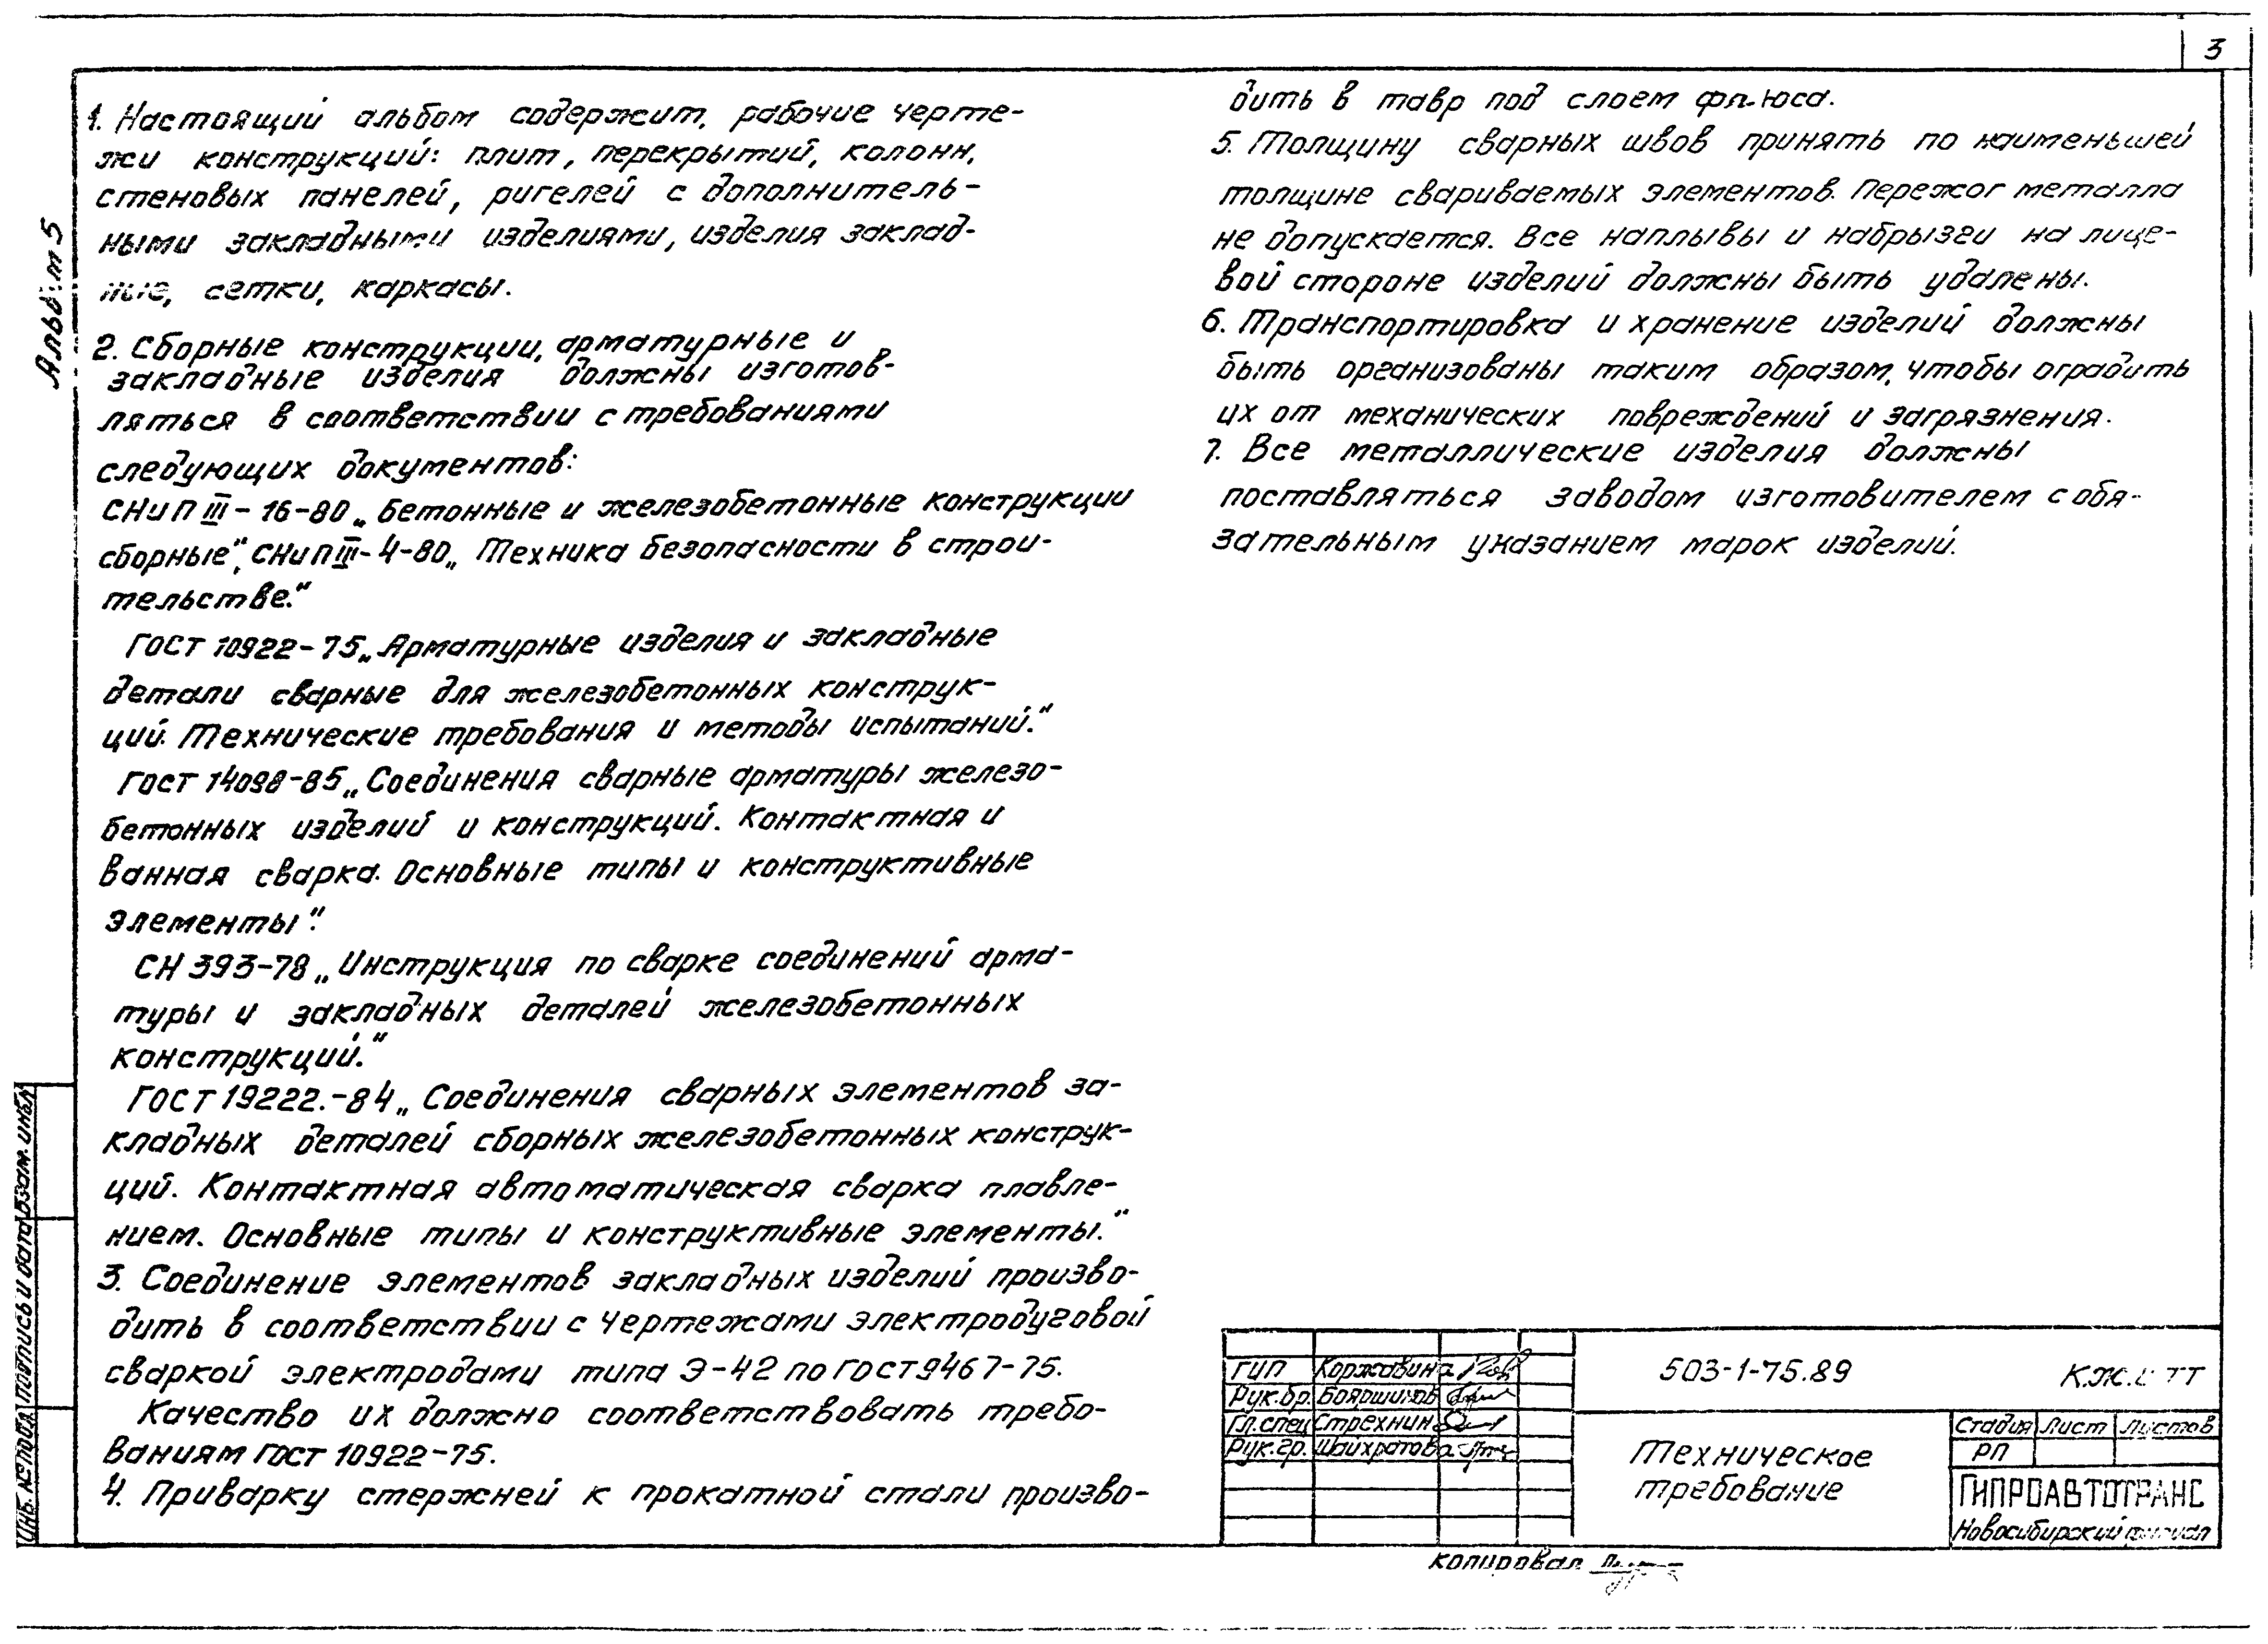 3
Альбом 5
1. Настоящий альбом содержит, рабочие черте-
жи конструкций: плит, перекрытий, колонн,
стеновых панелей, ригелей с дополнитель-
ными закладными изделиями, изделия заклад-
ные, сетки, каркасы.
2. Сборные конструкции, арматурные и
закладные изделия должны изготов-
ляться в соответствии с требованиями
следующих документов:
СНиП III-16-80 „Бетонные и железобетонные конструкции
сборные“, СНиП III-4-80 „Техника безопасности в строи-
тельстве.“
ГОСТ 10922-75 „Арматурные изделия и закладные
детали сварные для железобетонных конструк-
ций. Технические требования и методы испытаний.“
ГОСТ 14098-85 „Соединения сварные арматуры железо-
бетонных изделий и конструкций. Контактная и
ванная сварка. Основные типы и конструктивные
элементы“.
СН 393-78 „Инструкция по сварке соединений арма-
туры и закладных деталей железобетонных
конструкций.“
ГОСТ 19222.-84 „Соединения сварных элементов за-
кладных деталей сборных железобетонных конструк-
ций. Контактная автоматическая сварка плавле-
нием. Основные типы и конструктивные элементы.“
3. Соединение элементов закладных изделий произво-
дить в соответствии с чертежами электродуговой
сваркой электродами типа Э-42 по ГОСТ 9467-75.
Качество их должно соответствовать требо-
ваниям ГОСТ 10922-75.
4. Приварку стержней к прокатной стали произво-
дить в тавр под слоем флюса.
5. Толщину сварных швов принять по наименьшей
толщине свариваемых элементов. Пережог металла
не допускается. Все наплывы и набрызги на лице-
вой стороне изделий должны быть удалены.
6. Транспортировка и хранение изделий должны
быть организованы таким образом, чтобы оградить
их от механических повреждений и загрязнения.
7. Все металлические изделия должны
поставляться заводом изготовителем с обя-
зательным указанием марок изделий.
Инв. № подл. Подпись и дата Взам. инв. №
ГИП Коржавина
Рук. бр. Бояршинов
Гл. спец Стрехнин
Рук. гр. Шайхратова
503-1-75.89 КЖ.И ТТ
Техническое
требование
Стадия Лист Листов
РП
ГИПРОАВТОТРАНС
Новосибирский филиал
Копировал